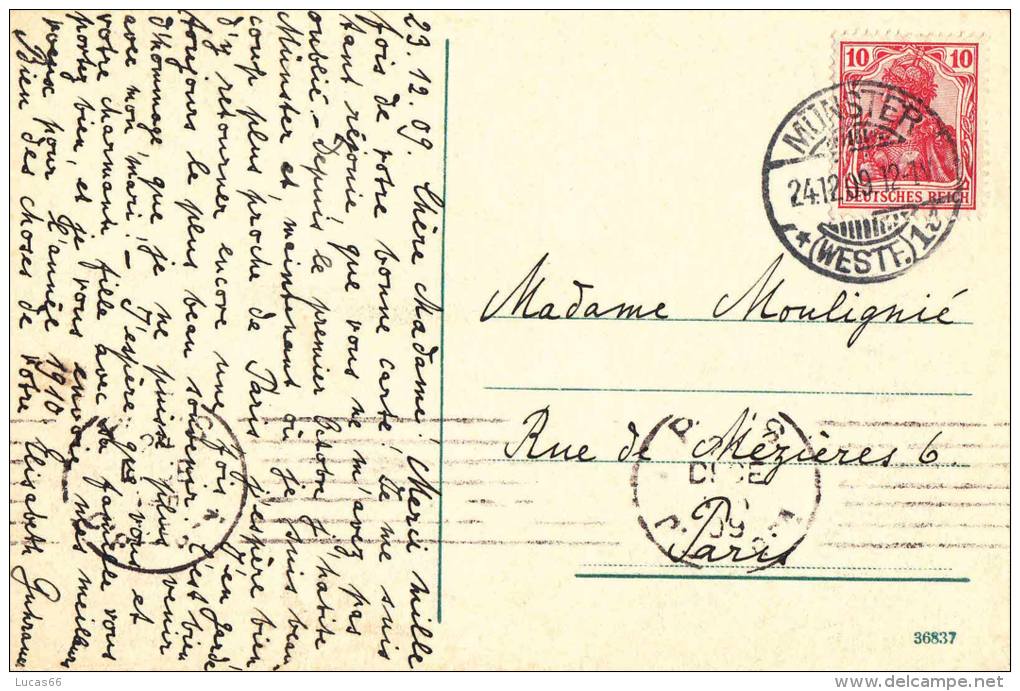 23.12.09. Chère Madame! Merci mille
fois de votre bonne carte! De me suis
tant réjouie, que vous ne m'avez pas
oublié. – Depuis le premier Octobre j'habite
Münster et maintenant où je suis beau
coup plus proche de Paris j'espère bien
d'y retourner encore une fois. J'en garde
toujours le plus beau souvenir. C'est bien
d'hommage, que je ne puisse plus venir
avec mon mari! – J'espère que vous et
votre charmant fille avec sa famille vous
portez bien, et je vous envoie mes meilleurs
voeux pour l'année 1910.
Bien des choses de votre Elisabeth
10 10
DEUTSCHES REICH
MÜNSTER
24.12.09. 12-1N
* (WESTF.) 13
Madame Moulignié
Rue de Mézières 6.
Paris
09
36837
Lucas66
delcampe.net